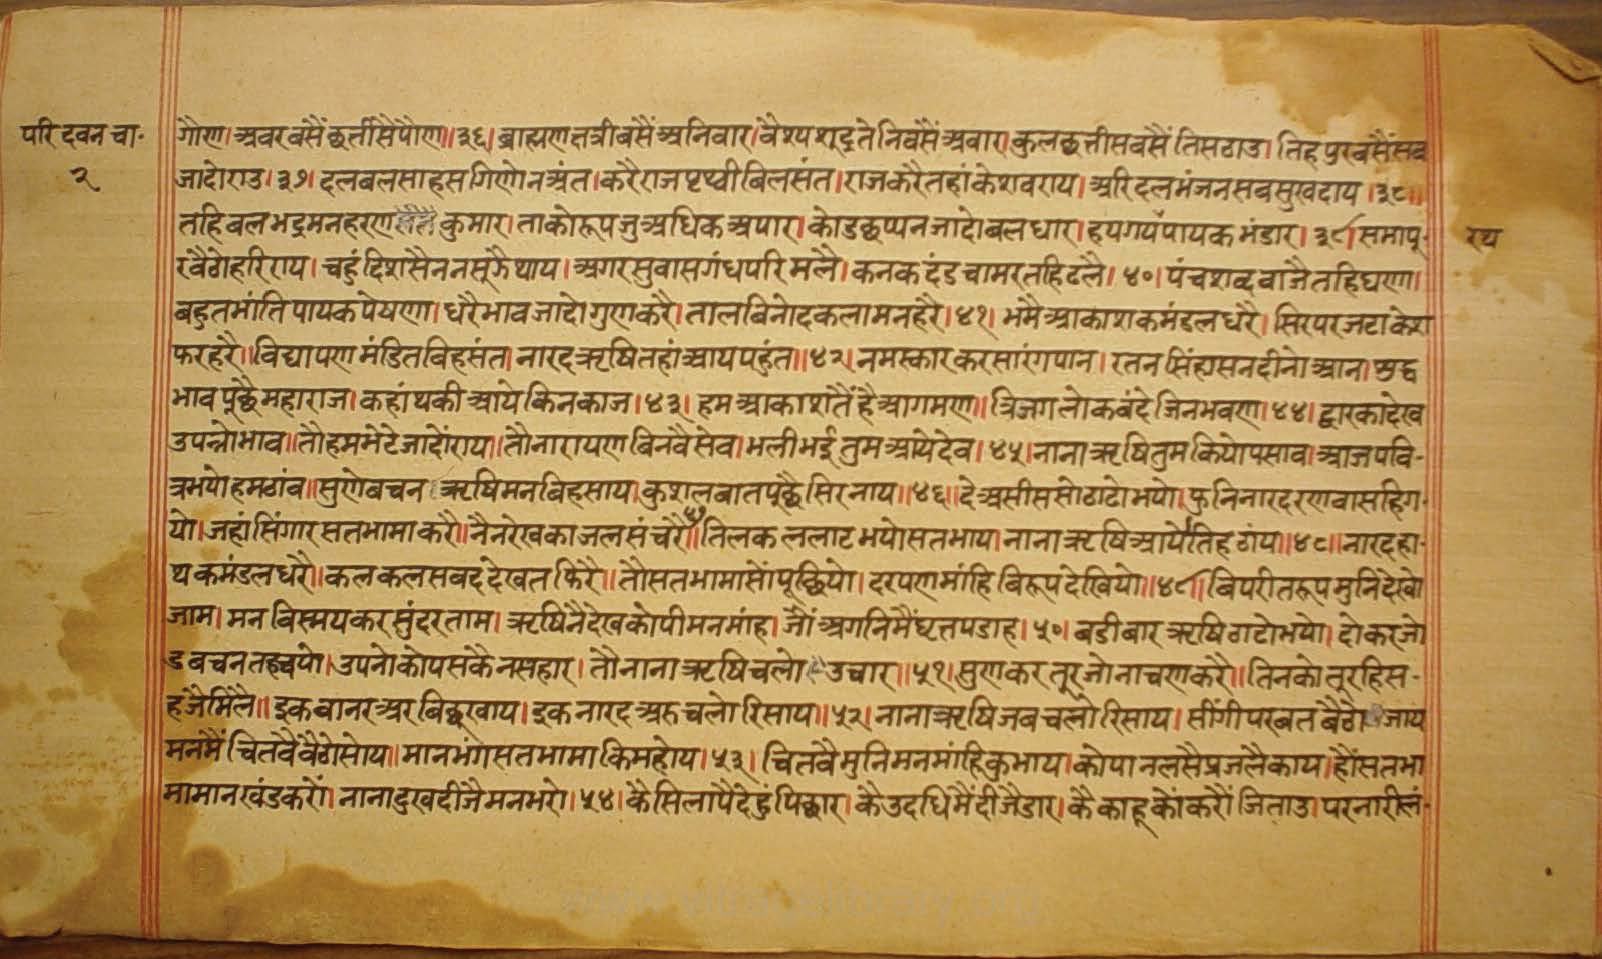 परिदवन चा॰
२
गौण। अवर वसैं छत्तीसै पौण॥३६। ब्राह्मण क्षत्री बसैं अनिवार। वैश्य शूद्र ते निवसैं अवार। कुल छत्तीस वसैं तिस ठाउ। तिह पुर वसैं सब
जादोराउ। ३७। दल बल साहस गिणे न अंत। करै राज पृथ्वी बिलसंत। राज करै तहां केशवराय। अरिदल भंजन सब सुखदाय।३८॥
तहि बलभद्र मनहरण कुमार। ताको रूप जु अधिक अपार। कोड छप्पन जादो बल धार। हय गय पायक भंडार। ३९। सभा पू-
रय
र बैठो हरिराय। चहुं दिश सैन न सूझै थाय। अगर सुवास गंध परिमलै। कनक दंड चामर तहि ढलै। ४०। पंच शब्द वाजै तहि घणा।
बहुत भांति पायक पेषणा। धरै भाव जादो गुण करै। ताल बिनोद कला मन हरै। ४१। भमै आकाश कमंडल धरै। सिर पर जटा केश
फरहरै। विद्या पण मंडित विहसंत। नारद ऋषि तहां आय पहुंत॥४२। नमस्कार कर सारंगपान। रतन सिंहासन दीनो आन। शुद्ध
भाव पूछै महाराज। कहां थकी आये किन काज। ४३। हम आकाश तैं है आगमण। त्रिजग लोक बंदे जिन भवण। ४४। द्वारका देख
उपन्नो भाव॥ तौ हम भेटे जादोंराय॥ तौ नारायण बिनवै सेव। भली भई तुम आये देव। ४५। नाना ऋषि तुम कियो पसाव। आज पवि-
त्र भयो हम ठांव॥ सुणे बचन ऋषि मन बिहसाय। कुशल बात पूछै सिर नाय॥४६। दे असीस सो ठाढो भयो। फुनि नारद रणवासहि ग-
यो। जहां सिंगार सतभामा करै। नैन रेख काजल संचरै॥ तिलक ललाट भयो सतभाय। नाना ऋषि आयो तिह ठांय॥४८॥ नारद हा-
थ कमंडल धरै॥ कल कल सबद देखत फिरै॥ तौ सतभामा सों पूछियो। दरपण मांहि विरूप देखियो॥४९॥ बिपरीत रूप मुनि देखो
जाम। मन बिस्मय कर सुंदर ताम। ऋषि नै देख कोपी मन मांह। जौं अगनि मैं घृत पडाह। ५०। बडी बार ऋषि ठाढो भयो। दो कर जो
ड बचन तह चयो। उपनो कोप सकै न सहार। तौ नाना ऋषि चलो उचार॥५१। सुण कर तूर जो नाचण करै॥ तिनको तूरहि स-
हजै मिलै॥ इक वानर अर बिछू खाय। इक नारद अरु चलो रिसाय॥५२। नाना ऋषि जब चलो रिसाय। सींगी परबत बैठो जाय
मन मैं चितवै बैठो सोय॥ मान भंग सतभामा किम होय। ५३। चितवै मुनि मन मांहि कुभाय। कोपानल सै प्रजलै काय। हौं सतभा
मा मान खंड करों। नाना दुख दीजै मन भरो। ५४। कै सिला पै दे हुं पिछार। कै उदधि मैं दीजै डार। कै काहू कों करौं जिताउ। पर नारी लं-